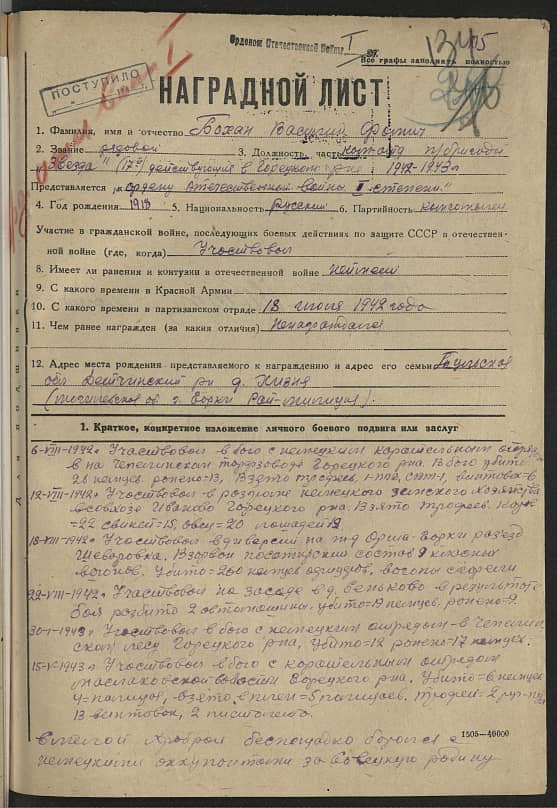 Орденом Отечественной Войны I
15
Все графы заполнять полностью
ПОСТУПИЛО
НАГРАДНОЙ ЛИСТ
1. Фамилия, имя и отчество Бохан Василий
2. Звание рядовой 3. Должность, часть п/бригады
Звезда" действующия в Горецком р-не 1942-1943г
Представляется к ордену Отечественной войны I степени"
4. Год рождения 1918 5. Национальность русский 6. Партийность комсомолец
Участие в гражданской войне, последующих боевых действиях по защите СССР и отечествен-
ной войне (где, когда) Участвовал
8. Имеет ли ранения и контузии в отечественной войне неимеет
9. С какого времени в Красной Армии
10. С какого времени в партизанском отряде 18 июня 1942 года
11. Чем ранее награжден (за какия отличия) Ненаграждался
12. Адрес места рождения представляемого к награждению и адрес его семьи Тульская
обл Детчинский р-н д.
г. Горки
Для подшивки
1. Краткое, конкретное изложение личного боевого подвига или заслуг
6-VIII-1942г Участвовал в бою с немецким карательным отряд
в на торфзаводе Горецкого р-на. В бою убито
28 немцев ранено=13, Взято трофеев,
12-VIII-1942г Участвовал в розгроме немецкого хозяйства
в совхозе Иваново Горецкого р-на. Взято трофеев.
=22 свиней=15, овец=20 лошадей
18-VIII-1942г Участвовал в диверсии на ж.д Орша-Горки разезд
Шеваровка. Взорвон состав 9
вогонов. Убито=200 немцев вогоны сгорели
22-VIII-1942г Участвовал на засаде в д. Веньково в результате
боя розбито 2 автомашины. убито=19 немцев, ронено=9.
30-1-1943г Участвовал в бою с немецким отрядом в
ском лесу Горецкого р-на, Убито=12 ронено=17 немцев.
15-V-1943г Участвовал в бою с карательным отрядом
Маслаковской волости Горецкого р-на. Убито=6 немцев
взято в плен=5 Трофей=2
13 винтовок, 2 пистолета
1505-40000
Смелой Храброй беспощадно боролся с
немецкими оккупонтами за Совецкую родину